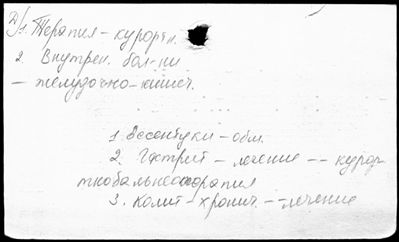 1. Терапия – курортн.
2. Внутрен. бол-ни
– желудочно-кишеч.
1 Ессентуки – обл.
2. Гастрит – лечение -- курор-
тнобальнеотерапия
3. Колит – хронич. – лечение